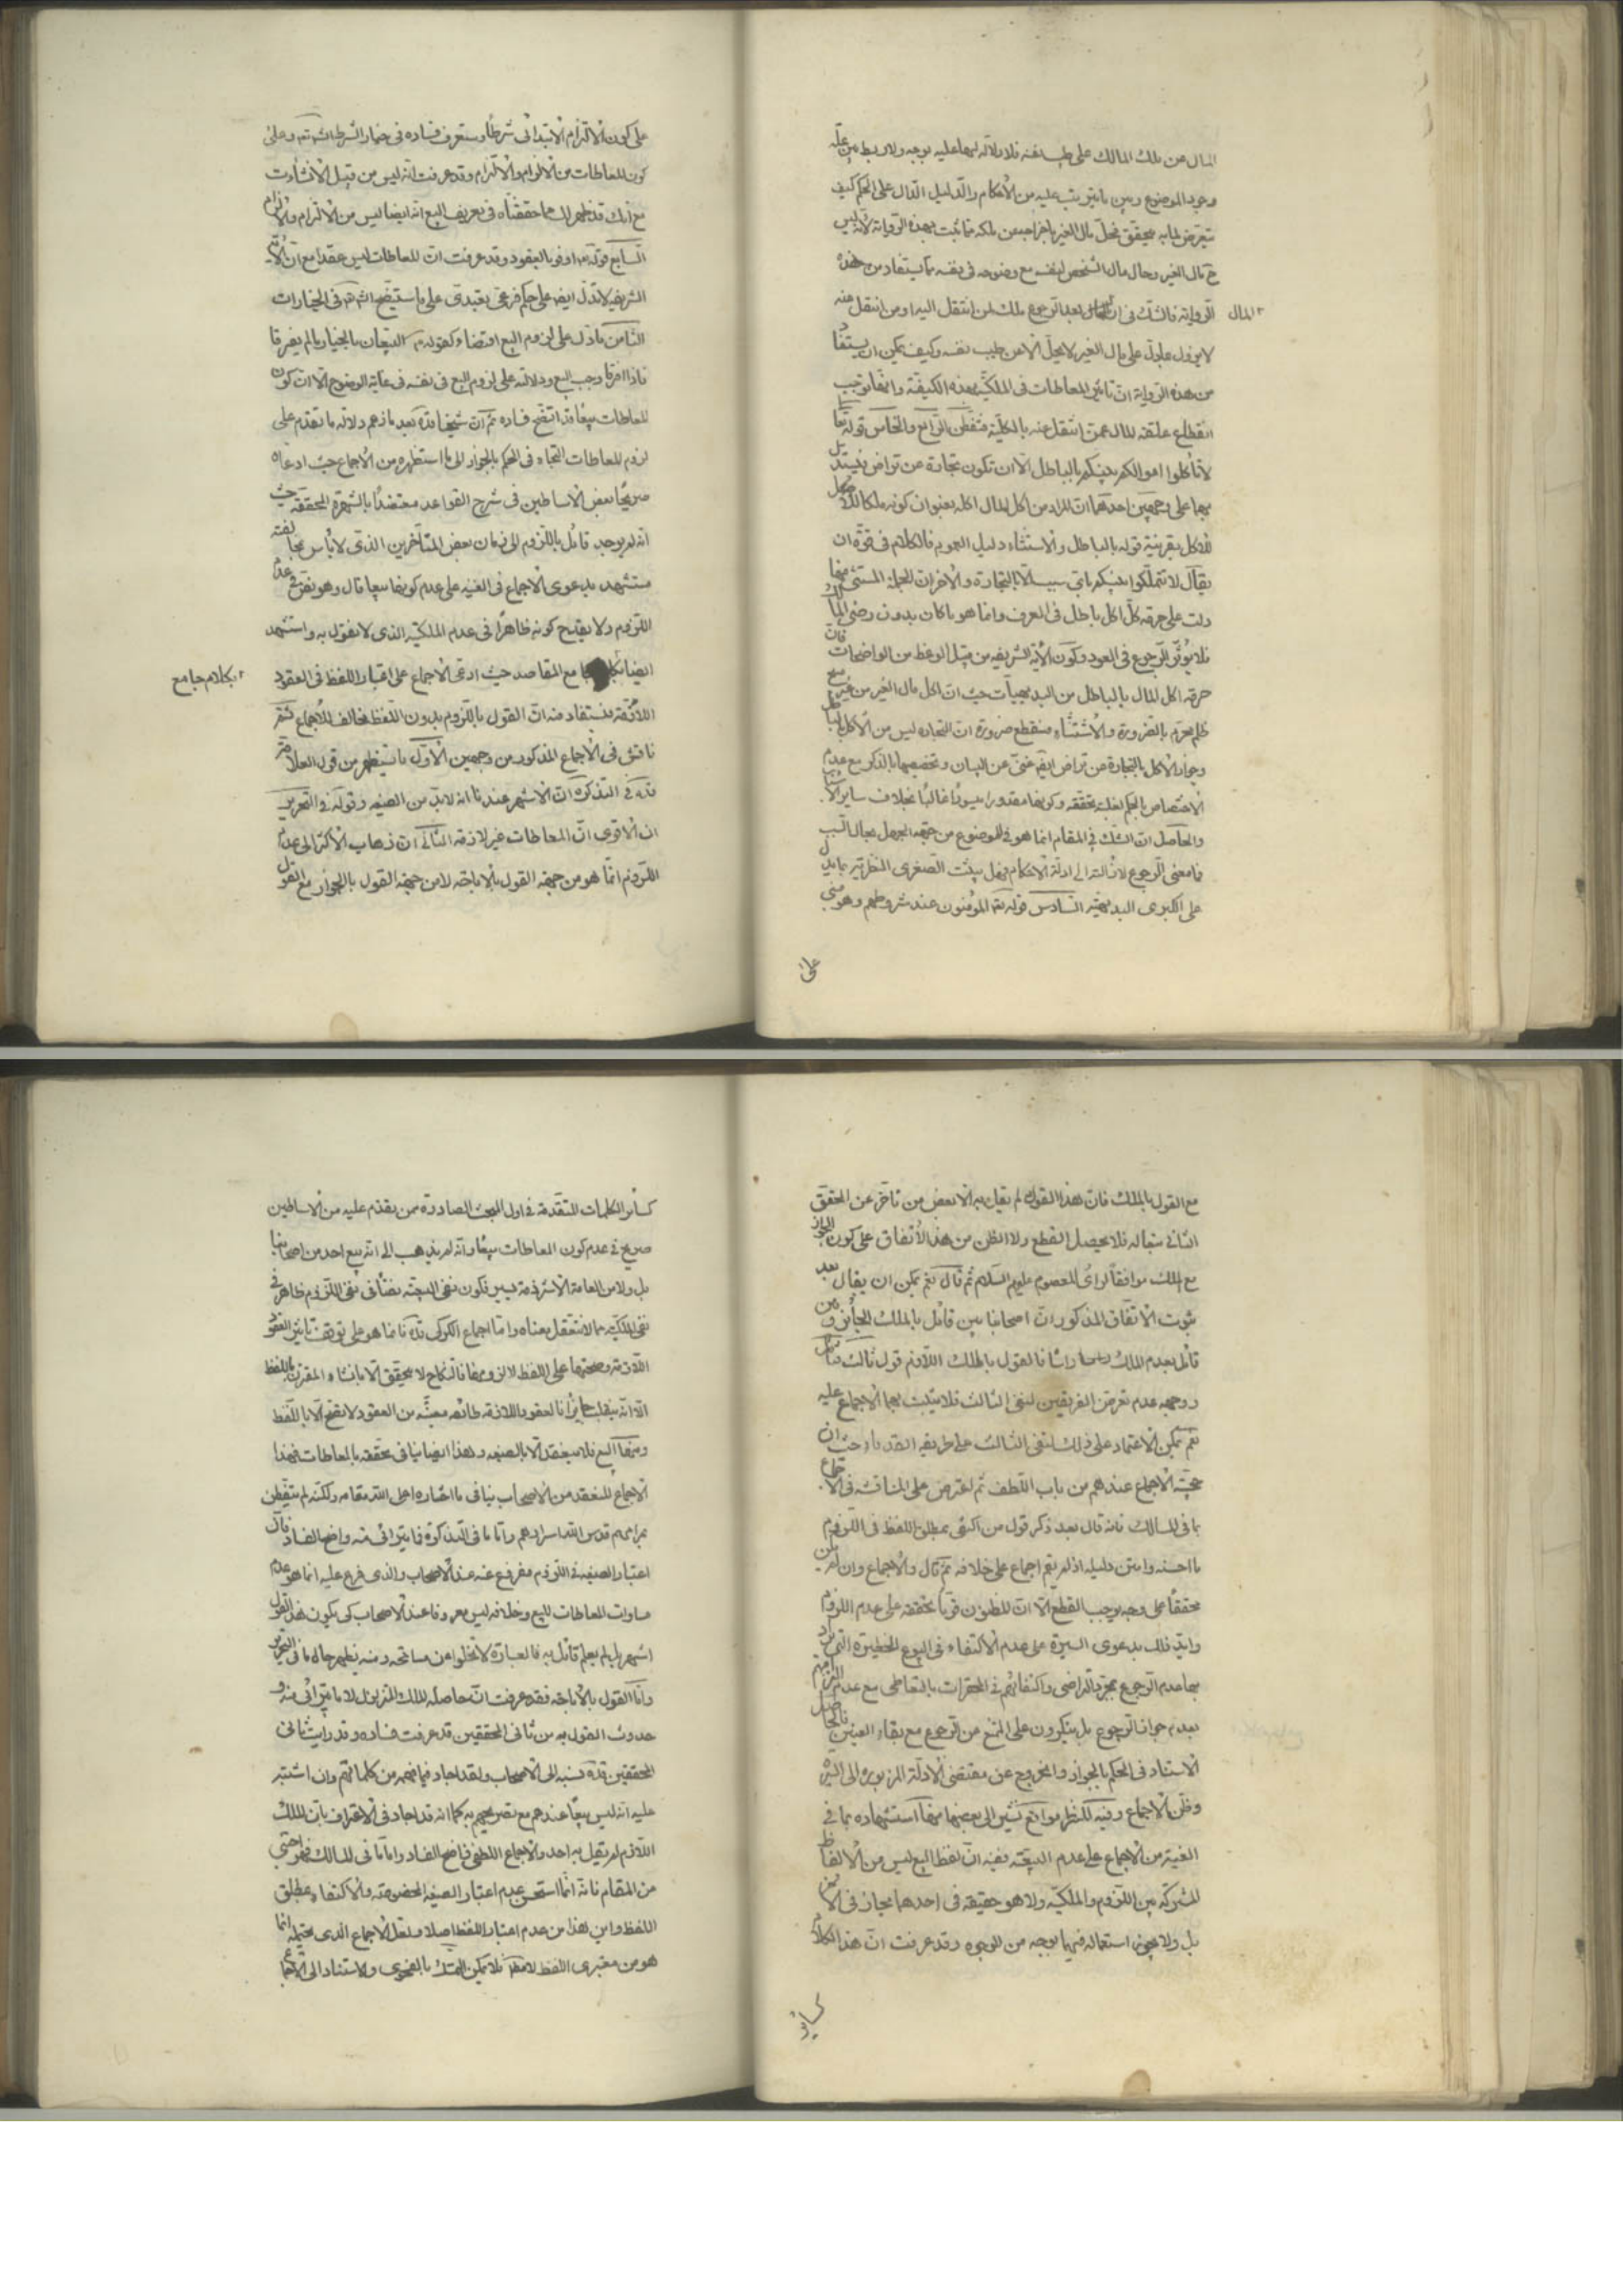 المال عن ملك المالك على طيب نفسه فلا دلالة لها عليه بوجه ولا ربط بين علة
وجود الموضوع وبين ما يترتب عليه من الأحكام والدليل الدال على الحكم كيف
يتعرض لما به يتحقق فحل مال الغير باخراجه عن ملكه مما ثبت بهذه الرواية لانه ليس
ح مال الغير وحال مال الشخص لنفسه مع وضوحه في نفسه مما يستفاد من هذه
الرواية فالشك في ان بعد الرجوع ملك لمن انتقل اليه او من انتقل عنه
المال
لا يزول بما دل على مال الغير لا يحل الا عن طيب نفسه وكيف يمكن ان يستفاد
من هذه الرواية ان تاثير المعاطات في الملكية بهذه الكيفية وانها توجب
انقطاع علقة المال عمن انتقل عنه بالكلية فتفطن الرابع والخامس قوله تعا
لا تاكلوا اموالكم بينكم بالباطل الا ان تكون تجارة عن تراض فيستدل
بها على وجهين احدهما ان المراد من اكل المال اكله بعنوان كونه ملكا للاكل
للاكل بقرينة قوله بالباطل والاستثناء دليل العموم فالكلام في قوة ان
يقال لا تتملكوا بينكم باي سبب الا بالتجارة والاخر ان الجملة المستثنى منها
دلت على حرمة كل اكل باطل في العرف وانما هو ما كان بدون رضى المالك
فلا يؤثر الرجوع في العود وكون الأية الشريفة من قبل الوعظ من الواضحات فان
حرمة اكل المال بالباطل من البديهيات حيث ان اكل مال الغير من غير
ظلم محرم بالضرورة والاستثناء منقطع ضرورة ان التجارة ليس من الاكل بالباطل
وجواز الاكل بالتجارة عن تراض ايضا غني عن البيان وتخصيصها بالذكر مع عدم
الاختصاص بالحكم لغلبة تحققه وكونها مقدورا ميسورا غالبا بخلاف ساير
والحاصل ان الشك في المقام انما هو في الموضوع من جهة الجهل بحال السبب
فما معنى الرجوع لازالته الى ادلة الاحكام وهل يثبت الصغرى النظرية بما يدل
على الكبرى البديهية السادس قوله المؤمنون عند شروطهم وهو مبني
على
على كون الالتزام الابتدائي شرطا وستعرف فساده في خيار الشرط انش تعه وعلى
كون المعاطات من الالزام والالتزام وقد عرفت انه ليس من قبيل الانشاءات
مع انك قد ظهر لك مما حققناه في تعريف البيع انه ايضا ليس من الالتزام والالزام
السابع قوله تع اوفوا بالعقود وقد عرفت ان المعاطات ليس عقدا مع ان الأية
الشريفة لا تدل ايضا على حكم فرعي تعبدي على ما ستيضح انش تع في الخيارات
الثامن ما دل على لزوم البيع اقتضاء كقوله البيعان بالخيار ما لم يفترقا
فاذا افترقا وجب البيع ودلالته على لزوم البيع في نفسه في غاية الوضوح الا ان كون
المعاطات بيعا قد اتضح فساده ثم ان شيخنا قده بعد ما زعم دلالة ما تقدم على
لزوم المعاطات التجاء في الحكم بالجواز الى ما استظهره من الاجماع حيث ادعاه
صريحا بعض الاساطين في شرح القواعد معتضدا بالشهرة المحققة حيث
انه لم يوجد قائل باللزوم الى زمان بعض المتاخرين الذي لا باس بمخالفته
مستشهد بدعوى الاجماع في الغنية على عدم كونها بيعا قال وهو نص في عدم
اللزوم ولا يقدح كونه ظاهرا في عدم الملكية الذي لا نقول به واستشهد
ايضا جامع المقاصد حيث ادعى الاجماع على اعتبار اللفظ في العقود
بكلام جامع
اللازمة فيستفاد منه ان القول باللزوم بدون اللفظ مخالف للاجماع ثم
ناقش في الاجماع المذكور من وجهين الاول ما يستظهر من قول العلامة
قده في التذكرة ان الاشهر عندنا انه لابد من الصيغة وقوله في التحرير
ان الاقوى ان المعاطات غير لازمة الثاني ان ذهاب الاكثر الى عدم
اللزوم انما هو من جهة القول بالاباحة لا من جهة القول بالجواز مع القول
مع القول بالملك فان هذا القول لم يقل به الا بعض من تاخر عن المحقق
الثاني تبعا له فلا يحصل القطع ولا الظن من هذا الاتفاق على كون الجواز
مع الملك موافقا لراى المعصوم عليهم السلام ثم قال نعم يمكن ان يقال بعد
ثبوت الاتفاق المذكور ان اصحابنا بين قائل بالملك الجائز وبين
قائل بعدم الملك راسا فالقول بالملك اللازم قول ثالث
ووجهه عدم تعرض الفريقين لنفي الثالث فلا يثبت بهما الاجماع عليه
نعم يمكن الاعتماد على ذلك لنفي الثالث على طريقة القدماء حيث ان
حجية الاجماع عندهم من باب اللطف ثم اعترض على المناقشة في الاجماع
بما في المسالك فانه قال بعد ذكر قول من اكتفى بمطلق اللفظ في اللزوم
ما احسنه وامتن دليله اذ لم يقم اجماع على خلافه ثم قال والاجماع وان لم يكن
محققا على وجه يوجب القطع الا ان المظنون قويا تحققه على عدم اللزوم
وايد ذلك بدعوى السيرة على عدم الاكتفاء في البيوع الخطيرة التي يراد
بها عدم الرجوع بمجرد التراضي واكتفائهم في المحقرات بالتعاطي مع عدم التزامهم
بعدم جواز الرجوع بل ينكرون على الممتنع من الرجوع مع بقاء العينين فالحاصل
الاستناد في الحكم بالجواز والخروج عن مقتضى الادلة المزبورة الى السيرة
وظن الاجماع وفيه للنظر مواقع نشير الى بعضها منها استشهاده بما في
الغنية من الاجماع على عدم البيعية ففيه ان لفظ البيع ليس من الالفاظ
المشتركة بين اللزوم والملكية ولا هو حقيقة في احدهما مجاز في الاخر
بل ولا يجوز استعماله فيهما بوجه من الوجوه وقد عرفت ان هذا الكلام
كسائر
كسائر الكلمات المتقدمة في اول المبحث الصادرة ممن تقدم عليه من الاساطين
صريح في عدم كون المعاطات بيعا وانه لم يذهب الى انه بيع احد من اصحابنا
بل ولا من العامة الا شرذمة يسير فكون نفي البيعية نصا في نفي اللزوم ظاهر في
نفي الملكية مما لا نتعقل معناه واما اجماع الكركي قده فانما هو على توقف تاثير العقود
اللازمة وصحتها على اللفظ لا لزومها فالنكاح لا يتحقق الا بانشاء المقرن باللفظ
الا انه ينقلب جايزا فالعقود اللازمة طائفة معينة من العقود لا تصح الا باللفظ
ومنها البيع فلا ينعقد الا بالصيغة وهذا ايضا ينافي تحققه بالمعاطات فهذا
الاجماع المنعقد من الاصحاب ينافي ما اختاره اعلى الله مقامه ولكنه لم يتفطن
بمرامهم قدس الله اسرارهم واما ما في التذكرة فما يترائى منه واضح الفساد فان
اعتبار الصيغة في اللزوم مفروغ عنه عند الاصحاب والذي فرع عليه انما هو عدم
مساوات المعاطات للبيع وخلافه ليس معروفا عند الاصحاب كي يكون هذا القول
اشهر بل لم يعلم قائل به فالعبارة لا تخلوا من مسامحة ومنه يظهر حال ما في التحرير
واما القول بالاباحة فقد عرفت ان حاصله الملك المتزلزل لا ما يترائى منه و
حدوث القول به من ثاني المحققين قد عرفت فساده وقد رايت ثاني
المحققين قده نسبه الى الاصحاب ولقد اجاد فيما فهمه من كلماتهم وان اشتبه
عليه انه ليس بيعا عندهم مع تصريحهم به كما انه قد اجاد في الاعتراف بان الملك
اللازم لم يقل به احد والاجماع اللطفي واضح الفساد واما ما في المسالك فهو اجنبي
من المقام فانه انما استحسن عدم اعتبار الصيغة المخصوصة والاكتفاء بمطلق
اللفظ واين هذا من عدم اعتبار اللفظ اصلا ولعل الاجماع الذي يحتمله انما
هو من معتبرى اللفظ فلا يمكن التمسك بالفحوى والاستناد الى الاجماع